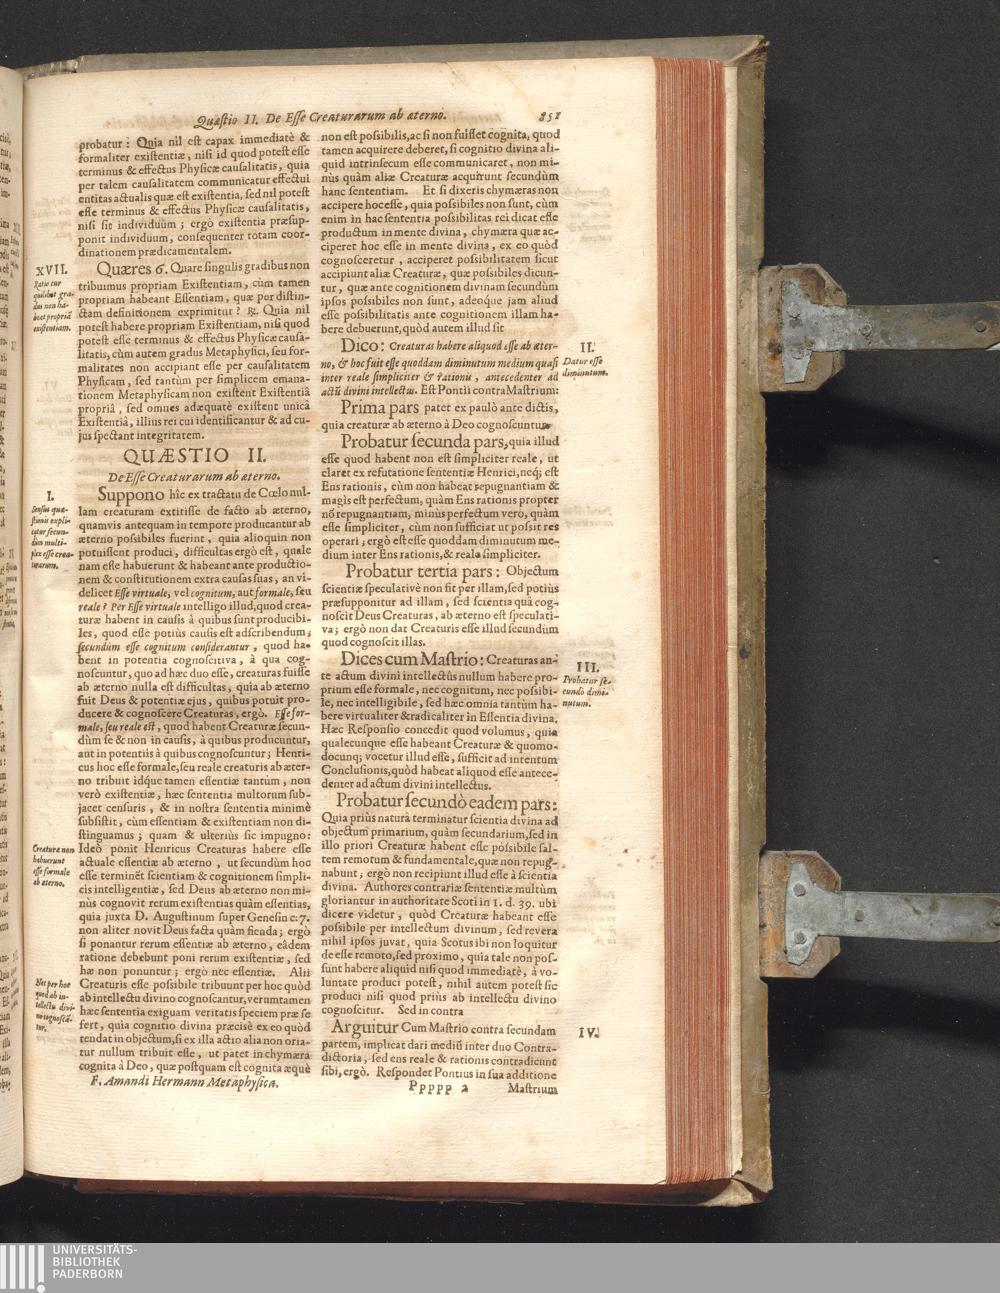 Quæstio II. De Esse Creaturarum ab æterno. 851
probatur: Quia nil est capax immediatè &
formaliter existentiæ, nisi id quod potest esse
terminus & effectus Physicæ causalitatis, quia
per talem causalitatem communicatur effectui
entitas actualis quæ est existentia, sed nil potest
esse terminus & effectus Physicæ causalitatis,
nisi sit individuum; ergò existentia præsup-
ponit individuum, consequenter totam coor-
dinationem prædicamentalem.
XVII.
Ratio cur
quilibet gra-
dus non ha-
beat propriã
existentiam.
Quæres 6. Quare singulis gradibus non
tribuimus propriam Existentiam, cùm tamen
propriam habeant Essentiam, quæ per distin-
ctam definitionem exprimitur? ℞. Quia nil
potest habere propriam Existentiam, nisi quod
potest esse terminus & effectus Physicæ causa-
litatis, cùm autem gradus Metaphysici, seu for-
malitates non accipiant esse per causalitatem
Physicam, sed tantùm per simplicem emana-
tionem Metaphysicam non existent Existentiâ
propriâ, sed omnes adæquatè existent unicâ
Existentiâ, illius rei cui identificantur & ad cu-
jus spectant integritatem.
QUÆSTIO II.
De Esse Creaturarum ab æterno.
I.
Sensus quæ-
stionis expli-
catur secun-
dùm multi-
plex esse crea-
turarum.
Suppono hîc ex tractatu de Cœlo nul-
lam creaturam extitisse de facto ab æterno,
quamvis antequam in tempore producantur ab
æterno possibiles fuerint, quia alioquin non
potuissent produci, difficultas ergò est, quale
nam esse habuerunt & habeant ante productio-
nem & constitutionem extra causas suas, an vi-
delicet Esse virtuale, vel cognitum, aut formale, seu
reale? Per Esse virtuale intelligo illud, quod crea-
turæ habent in causis à quibus sunt producibi-
les, quod esse potiùs causis est adscribendum;
secundùm esse cognitum considerantur, quod ha-
bent in potentia cognoscitiva, à qua cog-
noscuntur, quo ad hæc duo esse, creaturas fuisse
ab æterno nulla est difficultas, quia ab æterno
fuit Deus & potentiæ ejus, quibus potuit pro-
ducere & cognoscere Creaturas, ergò. Esse for-
male, seu reale est, quod habent Creaturæ secun-
dùm se & non in causis, à quibus producuntur,
aut in potentiis à quibus cognoscuntur; Henri-
cus hoc esse formale, seu reale creaturis ab æter-
no tribuit idque tamen essentiæ tantùm, non
verò existentiæ, hæc sententia multorum sub-
jacet censuris, & in nostra sententia minimè
subsistit, cùm essentiam & existentiam non di-
stinguamus; quam & ulteriùs sic impugno:
Creaturæ non
habuerunt
esse formale
ab æterno.
Ideò ponit Henricus Creaturas habere esse
actuale essentiæ ab æterno, ut secundùm hoc
esse terminẽt scientiam & cognitionem simpli-
cis intelligentiæ, sed Deus ab æterno non mi-
nùs cognovit rerum existentias quàm essentias,
quia juxta D. Augustinum super Genesin c. 7.
non aliter novit Deus facta quàm fienda; ergò
si ponantur rerum essentiæ ab æterno, eâdem
ratione debebunt poni rerum existentiæ, sed
hæ non ponuntur; ergò nec essentiæ. Alii
Nec per hoc
quod ab in-
tellectu divi-
no cognoscã-
tur.
Creaturis esse possibile tribuunt per hoc quòd
ab intellectu divino cognoscantur, veruntamen
hæc sententia exiguam veritatis speciem præ se
fert, quia cognitio divina præcisè ex eo quòd
tendat in objectum, si ex illa actio alia non oria-
tur nullum tribuit esse, ut patet in chymæra
cognita à Deo, quæ postquam est cognita æquè
F. Amandi Hermann Metaphysica.
non est possibilis, ac si non fuisset cognita, quod
tamen acquirere deberet, si cognitio divina ali-
quid intrinsecum esse communicaret, non mi-
nùs quàm aliæ Creaturæ acquirunt secundùm
hanc sententiam. Et si dixeris chymæras non
accipere hoc esse, quia possibiles non sunt, cùm
enim in hac sententia possibilitas rei dicat esse
productum in mente divina, chymæra quæ ac-
ciperet hoc esse in mente divina, ex eo quòd
cognosceretur, acciperet possibilitatem sicut
accipiunt aliæ Creaturæ, quæ possibiles dicun-
tur, quæ ante cognitionem divinam secundùm
ipsos possibiles non sunt, adeoque jam aliud
esse possibilitatis ante cognitionem illam ha-
bere debuerunt, quòd autem illud sit
II.
Datur esse
diminutum.
Dico: Creaturas habere aliquod esse ab æter-
no, & hoc fuit esse quoddam diminutum medium quasi
inter reale simpliciter & rationis, antecedenter ad
actũ divini intellectus. Est Pontii contra Mastrium:
Prima pars patet ex paulò ante dictis,
quia creaturæ ab æterno à Deo cognoscuntur.
Probatur secunda pars, quia illud
esse quod habent non est simpliciter reale, ut
claret ex refutatione sententiæ Henrici, neq; est
Ens rationis, cùm non habeat repugnantiam &
magis est perfectum, quàm Ens rationis propter
nõ repugnantiam, minùs perfectum verò, quàm
esse simpliciter, cùm non sufficiat ut possit res
operari; ergò est esse quoddam diminutum me-
dium inter Ens rationis, & reale simpliciter.
Probatur tertia pars: Objectum
scientiæ speculativè non fit per illam, sed potiùs
præsupponitur ad illam, sed scientia quâ cog-
noscit Deus Creaturas, ab æterno est speculati-
va; ergò non dat Creaturis esse illud secundùm
quod cognoscit illas.
III.
Probatur se-
cundò dimi-
nutum.
Dices cum Mastrio: Creaturas an-
te actum divini intellectûs nullum habere pro-
prium esse formale, nec cognitum, nec possibi-
le, nec intelligibile, sed hæc omnia tantùm ha-
bere virtualiter & radicaliter in Essentia divina.
Hæc Responsio concedit quod volumus, quia
qualecunque esse habeant Creaturæ & quomo-
docunq; vocetur illud esse, sufficit ad intentum
Conclusionis, quòd habeat aliquod esse antece-
denter ad actum divini intellectus.
Probatur secundò eadem pars:
Quia priùs naturâ terminatur scientia divina ad
objectum primarium, quàm secundarium, sed in
illo priori Creaturæ habent esse possibile sal-
tem remotum & fundamentale, quæ non repug-
nabunt; ergò non recipiunt illud esse à scientia
divina. Authores contrariæ sententiæ multùm
gloriantur in authoritate Scoti in 1. d. 39. ubi
dicere videtur, quòd Creaturæ habeant esse
possibile per intellectum divinum, sed revera
nihil ipsos juvat, quia Scotus ibi non loquitur
de esse remoto, sed proximo, quia tale non pos-
sunt habere aliquid nisi quod immediatè, à vo-
luntate produci potest, nihil autem potest sic
produci nisi quod priùs ab intellectu divino
cognoscitur. Sed in contra
IV.
Arguitur Cum Mastrio contra secundam
partem, implicat dari mediũ inter duo Contra-
dictoria, sed ens reale & rationis contradicunt
sibi, ergò. Respondet Pontius in sua additione
Ppppp 2 Mastrium
UNIVERSITÄTS-
BIBLIOTHEK
PADERBORN